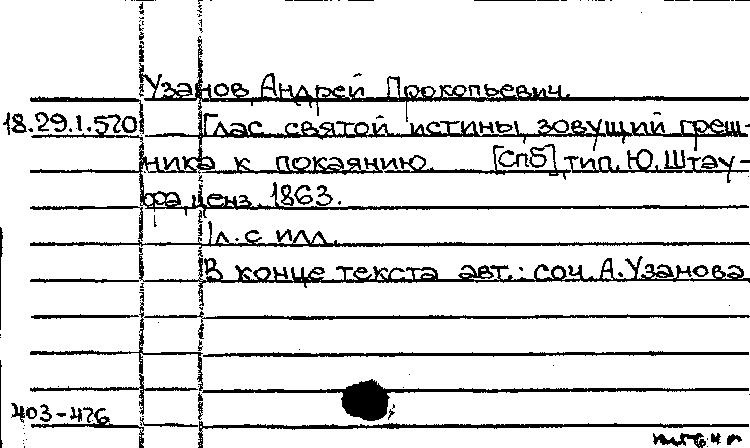 Узанов, Андрей Прокопьевич.
18.29.1.520 Глас святой истины, зовущий греш-
ника к покаянию. [Спб], тип. Ю. Штау-
фа, ценз. 1863.
1 л. с илл.
В конце текста авт.: соч. А. Узанова
403-476